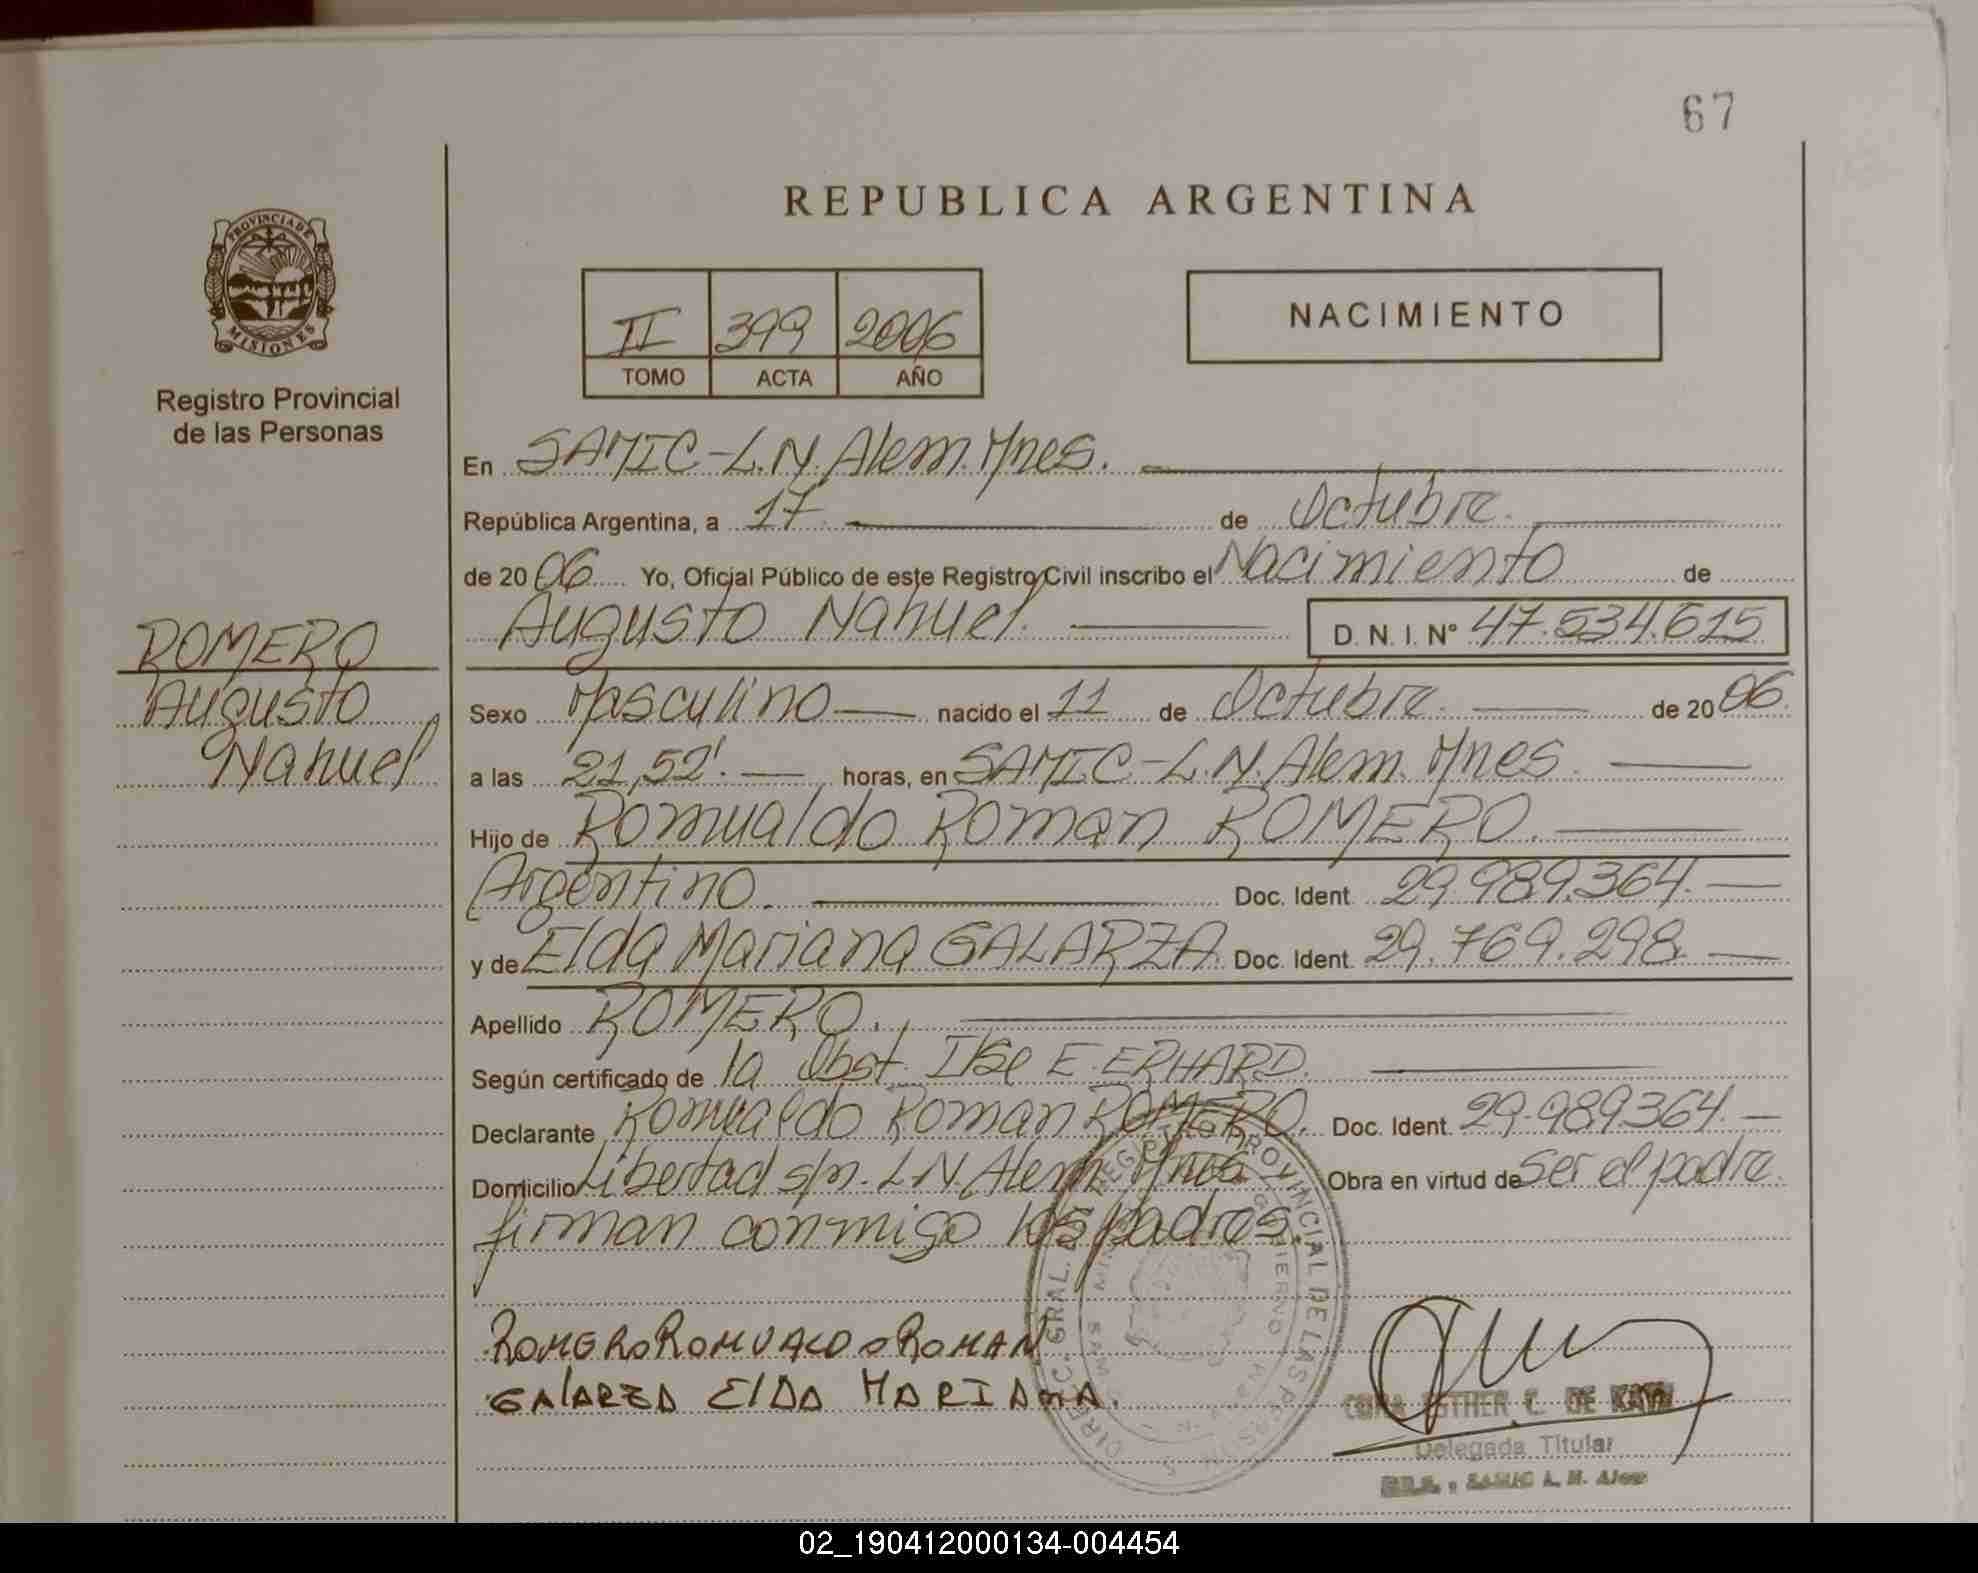 67
REPUBLICA ARGENTINA
PROVINCIA DE MISIONES
Registro Provincial
de las Personas
II 399 2006
TOMO ACTA AÑO
NACIMIENTO
En SAMIC-L.N. Alem. Mnes.
República Argentina, a 17 de Octubre.
de 2006 Yo, Oficial Público de este Registro Civil inscribo el Nacimiento de
Augusto Nahuel. D. N. I. N° 47.534.615
ROMERO
Augusto
Nahuel
Sexo Masculino nacido el 11 de Octubre. de 2006.
a las 21,52'. horas, en SAMIC-L.N. Alem. Mnes.
Hijo de Romualdo Roman ROMERO.
Argentino. Doc. Ident. 29.989.364.
y de Elda Mariana GALARZA Doc. Ident. 29.769.298.
Apellido ROMERO.
Según certificado de la Obst. Ilse E. ERHARD.
Declarante Romualdo Roman ROMERO. Doc. Ident. 29.989364.
Domicilio Libertad s/n. L N. Alem. Mnes Obra en virtud de ser el padre.
firman conmigo los padres.
ROMERO ROMUALDO ROMAN
GALARZA ElDA MARIANA.
DIREC. GRAL. REGISTRO PROVINCIAL DE LAS PERSONAS
ESTHER C. DE
Delegada Titular
SAMIC L. N. Alem
02_190412000134-004454